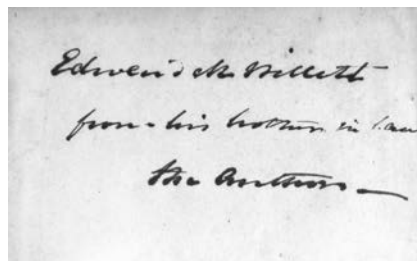 Edward M. Willett
from his brother in law
the Author —